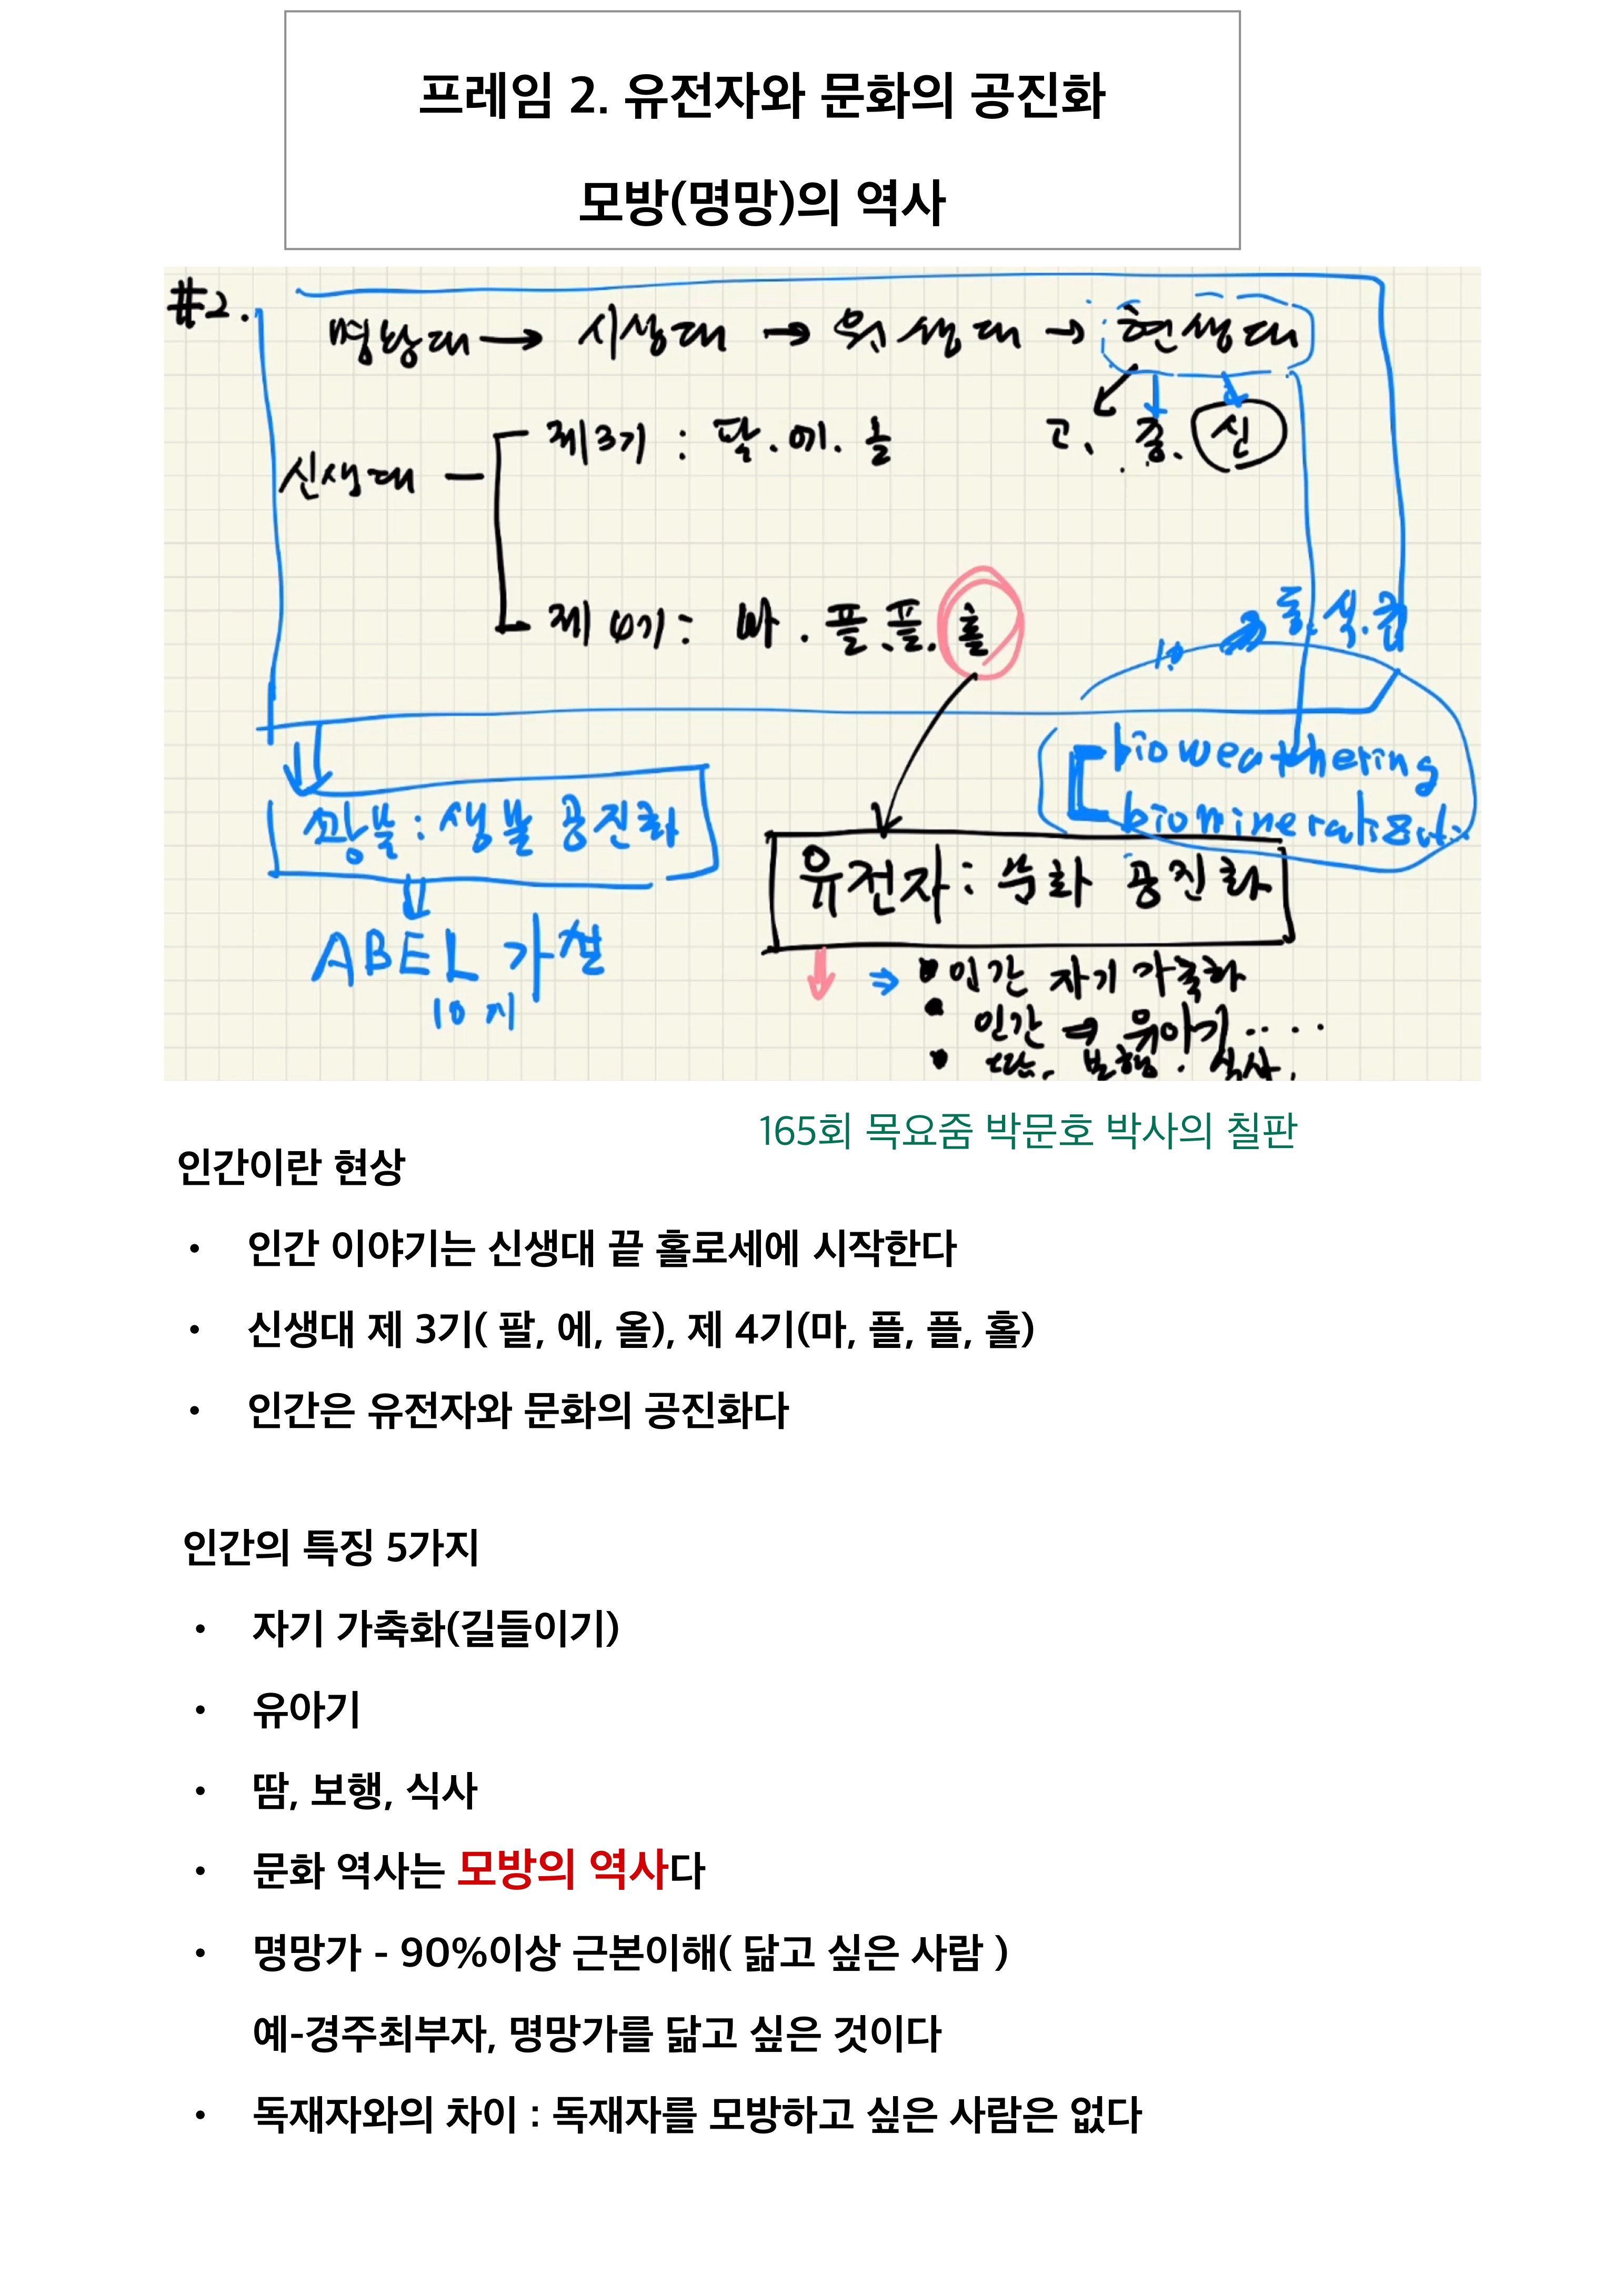 프레임 2. 유전자와 문화의 공진화
모방(명망)의 역사
#2.
명왕대 → 시생대 → 원생대 → 현생대
신생대 제3기 : 팔.에.올 고. 중. 신
제4기 : 마.플.플.홀
10 돌.석.
bioweathering
biomineralizat
광물 : 생물 공진화
유전자 : 문화 공진화
ABEL 가설
10 지
⇒ • 인간 자기 가축화
• 인간 → 유아기 ....
• 땀. 보행. 식사.
165회 목요줌 박문호 박사의 칠판
인간이란 현상
• 인간 이야기는 신생대 끝 홀로세에 시작한다
• 신생대 제 3기( 팔, 에, 올), 제 4기(마, 플, 플, 홀)
• 인간은 유전자와 문화의 공진화다
인간의 특징 5가지
• 자기 가축화(길들이기)
• 유아기
• 땀, 보행, 식사
• 문화 역사는 모방의 역사다
• 명망가 - 90%이상 근본이해( 닮고 싶은 사람 )
예-경주최부자, 명망가를 닮고 싶은 것이다
• 독재자와의 차이 : 독재자를 모방하고 싶은 사람은 없다